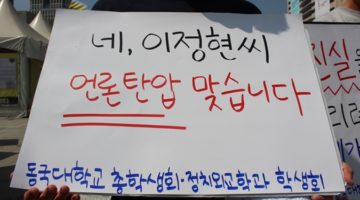 네, 이정현씨
언론탄압 맞습니다
동국대학교 총학생회·정치외교학과 학생회
진실